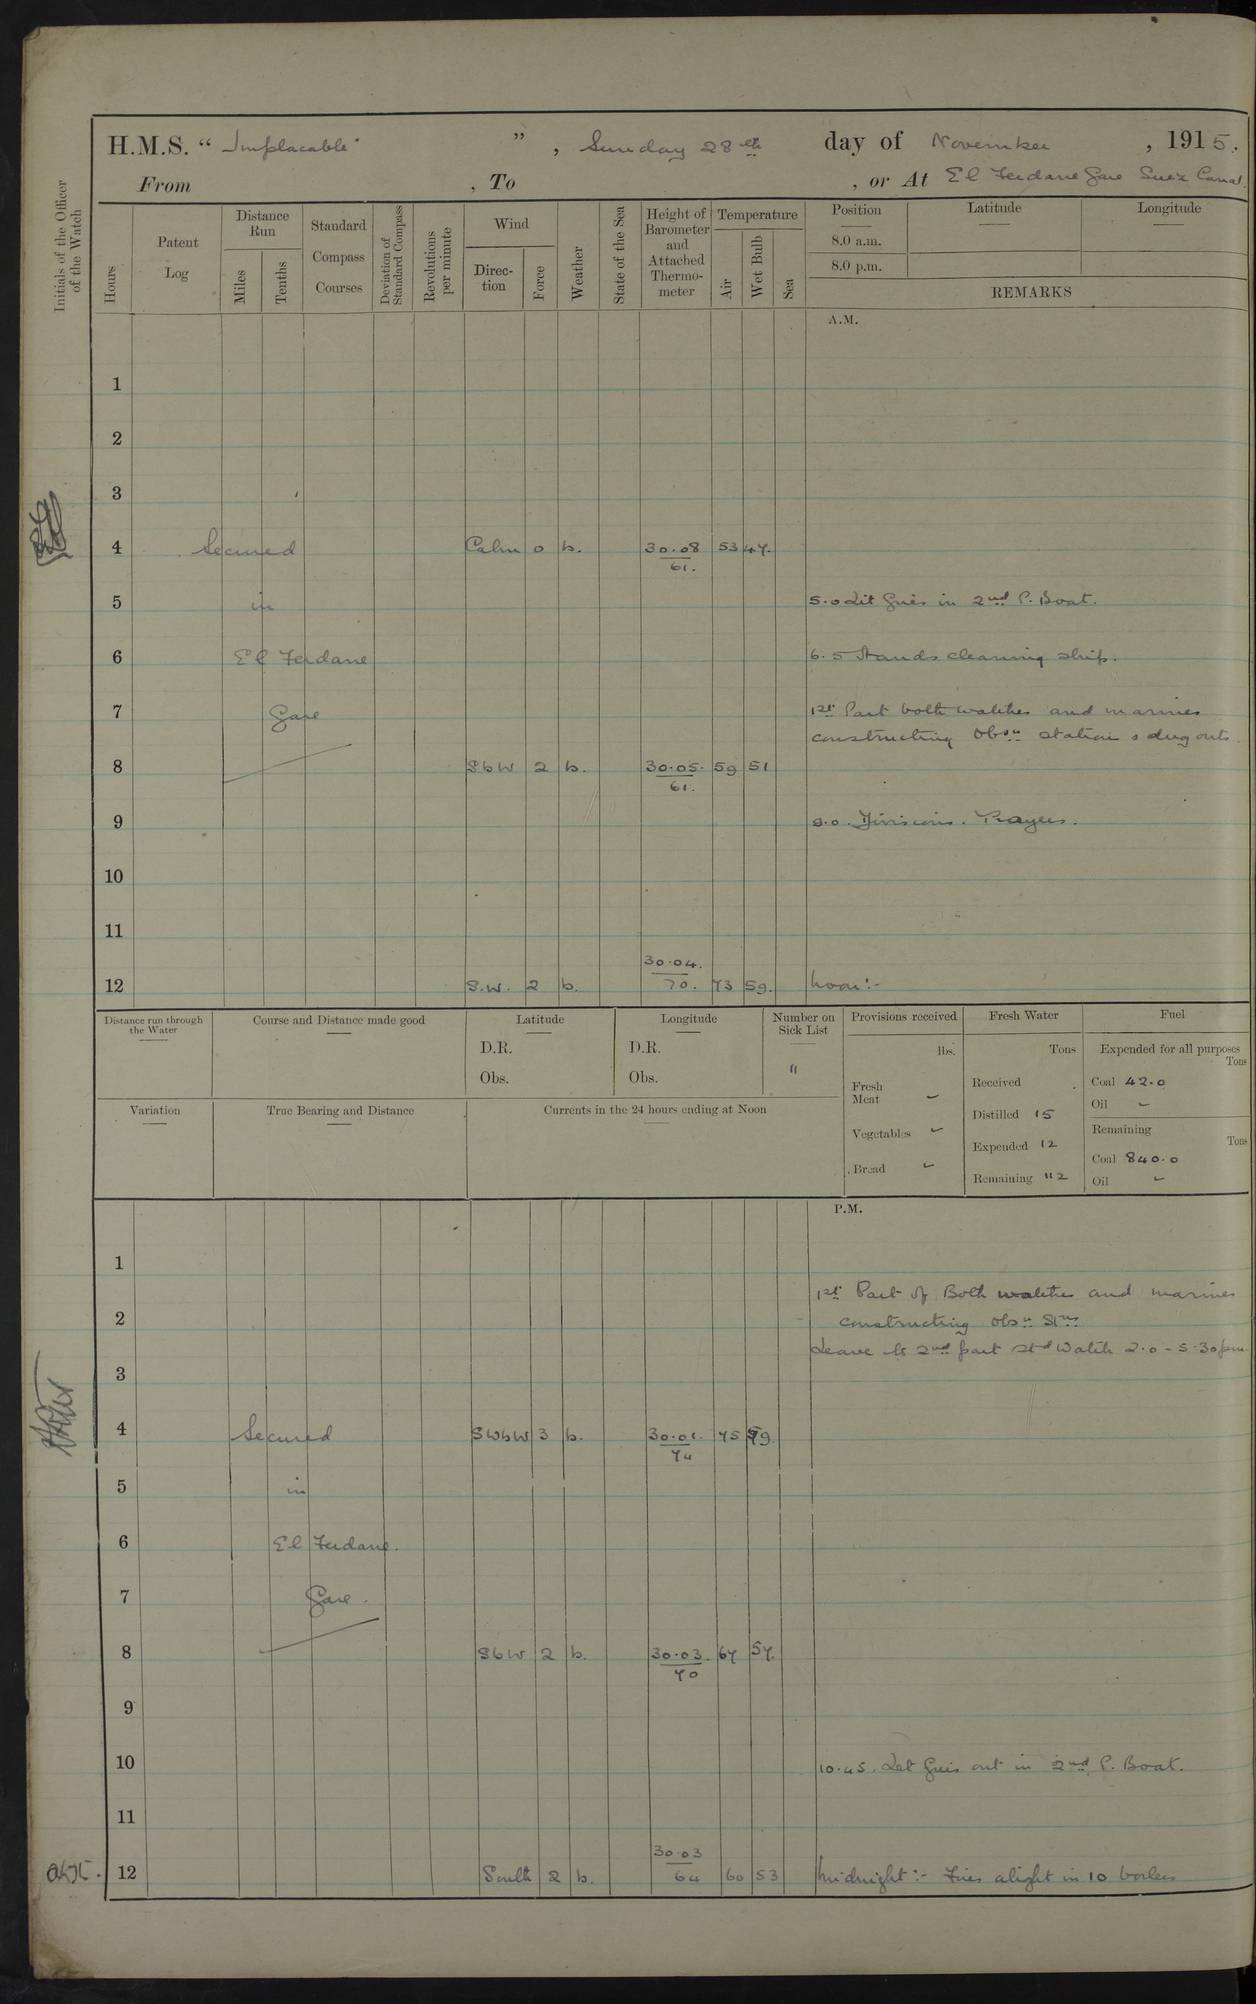 H.M.S. “ Implacable ” , Sunday 28th day of November , 1915.
From , To , or At El Ferdane Gare Suez Canal.
Initials of the Officer of the Watch
Hours
Patent Log
Distance Run
Miles
Tenths
Standard Compass Courses
Deviation of Standard Compass
Revolutions per minute
Wind
Direc-tion
Force
Weather
State of the Sea
Height of Barometer and Attached Thermo-meter
Temperature
Air
Wet Bulb
Sea
Position Latitude Longitude
8.0 a.m.
8.0 p.m.
REMARKS
A.M.
1
2
3
4 Secured Calm 0 b. 30.08 53 47.
61.
5 in 5.0 Lit fires in 2nd P. Boat.
6 El Ferdane 6.5 Hands cleaning ship.
7 Gare 1st Part both watches and marines
constructing Obsn station & dug outs.
8 SbW 2 b. 30.05. 59 51
61.
9 9.0. Divisions. Prayers.
10
11
30.04.
12 S.W. 2 b. 70. 73 59. Noon:-
Distance run through the Water
Course and Distance made good
Latitude
D.R.
Obs.
Longitude
D.R.
Obs.
Number on Sick List
11
Provisions received
lbs.
Fresh Meat -
Vegetables -
Bread -
Fresh Water
Tons
Received
Distilled 15
Expended 12
Remaining 112
Fuel
Expended for all purposes
Tons
Coal 42.0
Oil -
Remaining
Tons
Coal 840.0
Oil -
Variation
True Bearing and Distance
Currents in the 24 hours ending at Noon
P.M.
1
1st Part of Both watches and marines
2 constructing Obsn Stns
Leave to 2nd part Stbd Watch 2.0 - 5.30pm.
3
4 Secured SWbW 3 b. 30.01. 75 59
74
5 in
6 El Ferdane.
7 Gare.
8 SbW 2 b. 30.03. 67 57.
70
9
10 10.45. Let fires out in 2nd P. Boat.
11
30.03
12 South 2 b. 64 60 53 Midnight:- Fires alight in 10 boilers